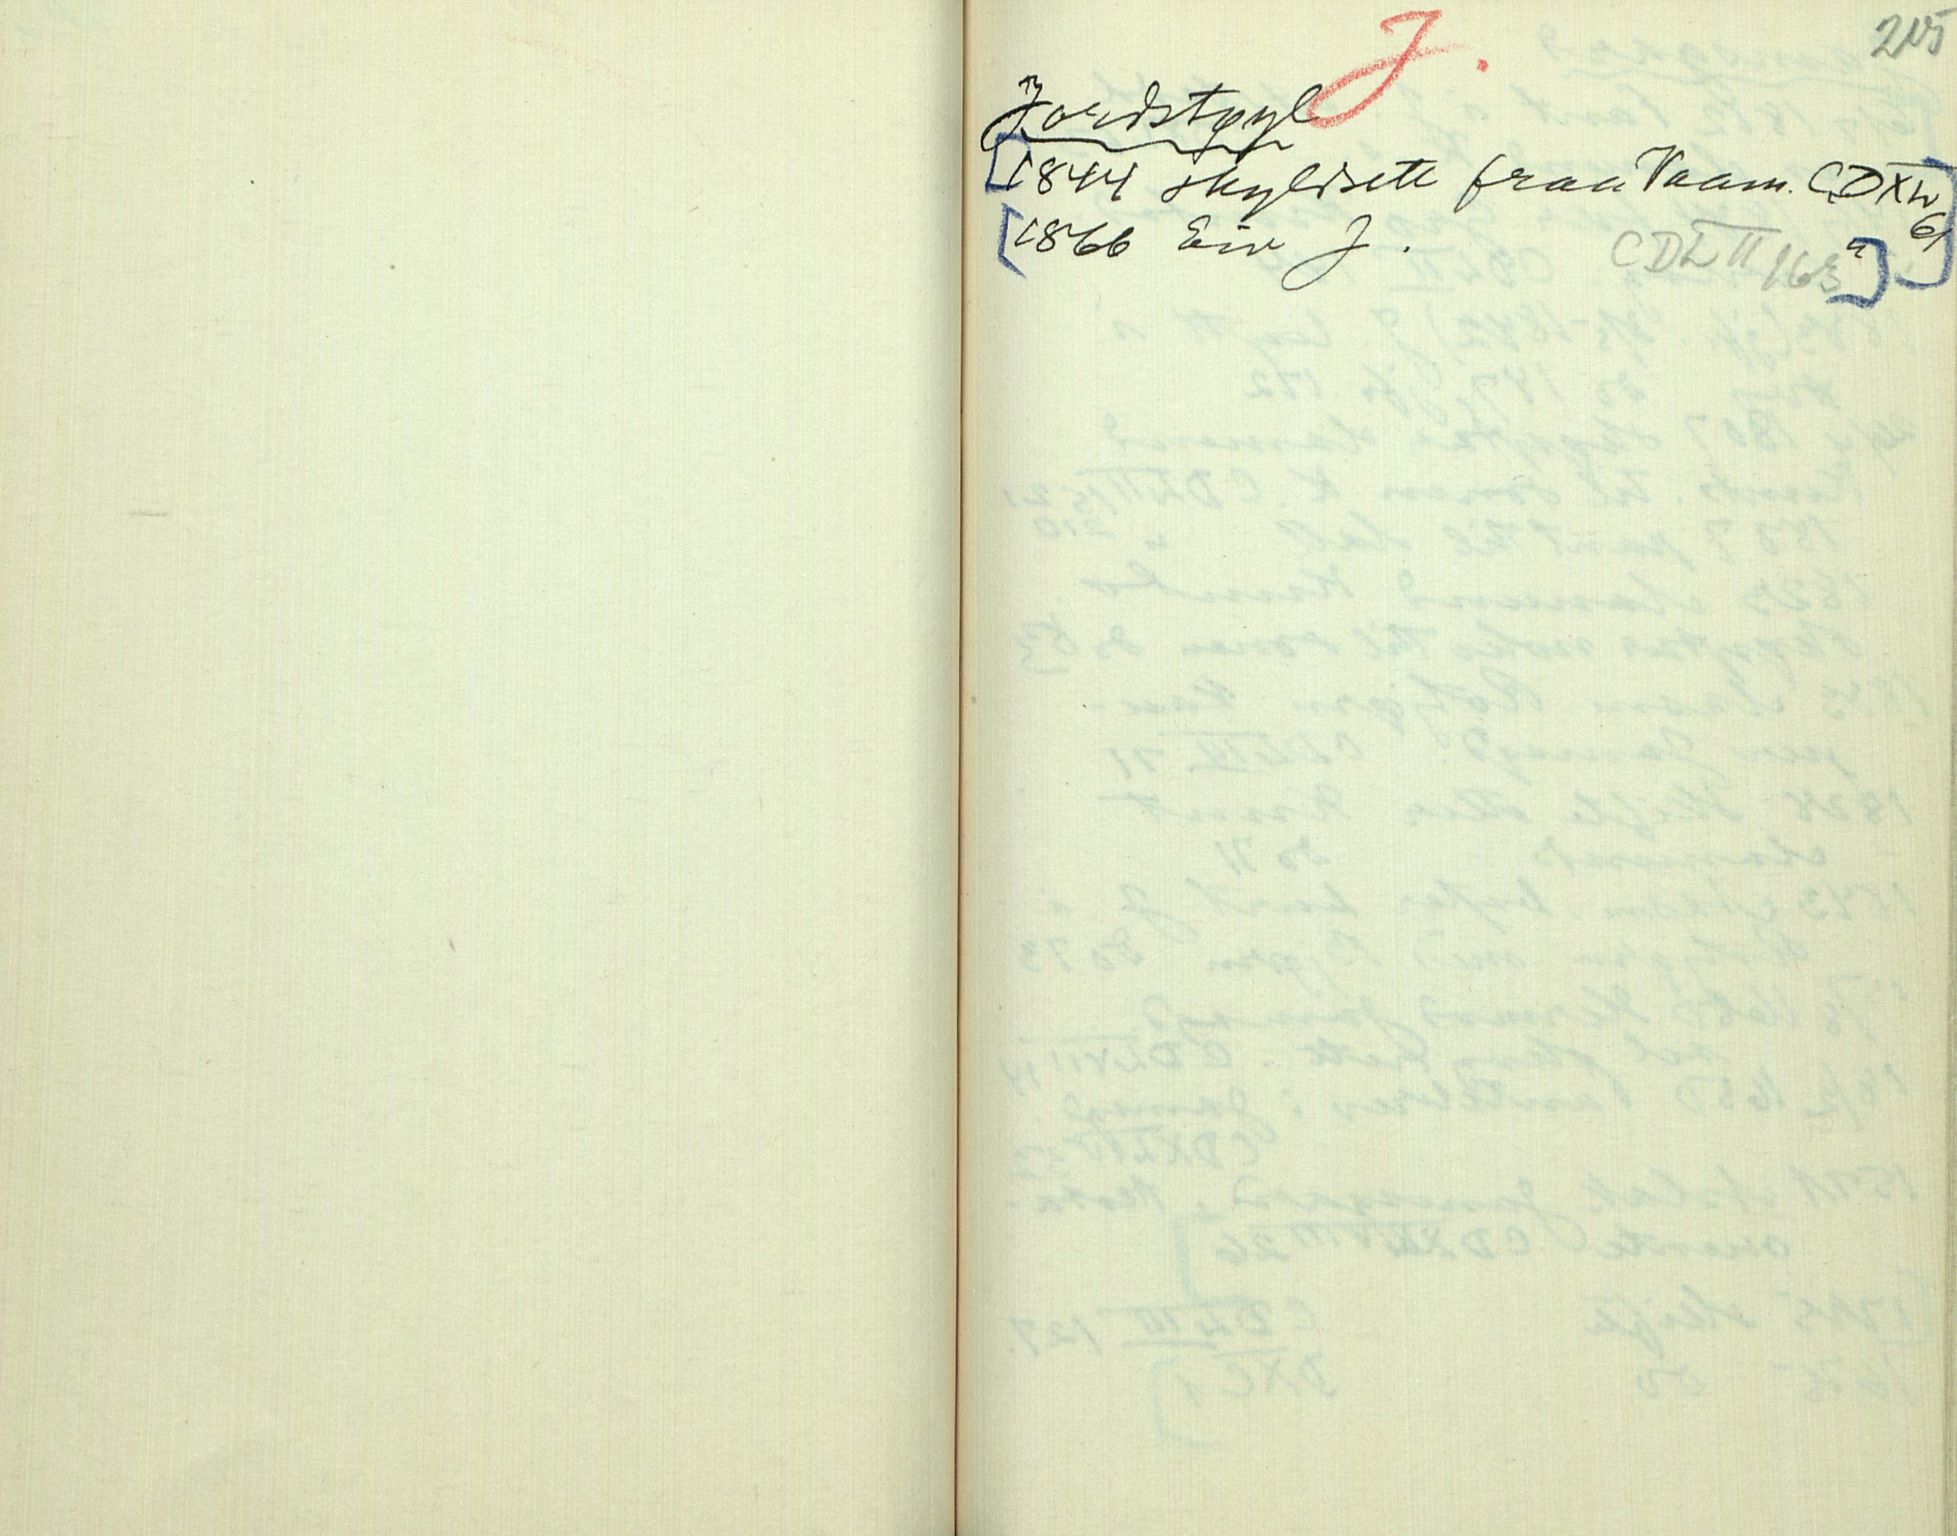 215
J.
Jordstøyl
[1844 skyldsett fraa Vaam. CDXL
61]
[1866 Eiv J. CDLII 163]